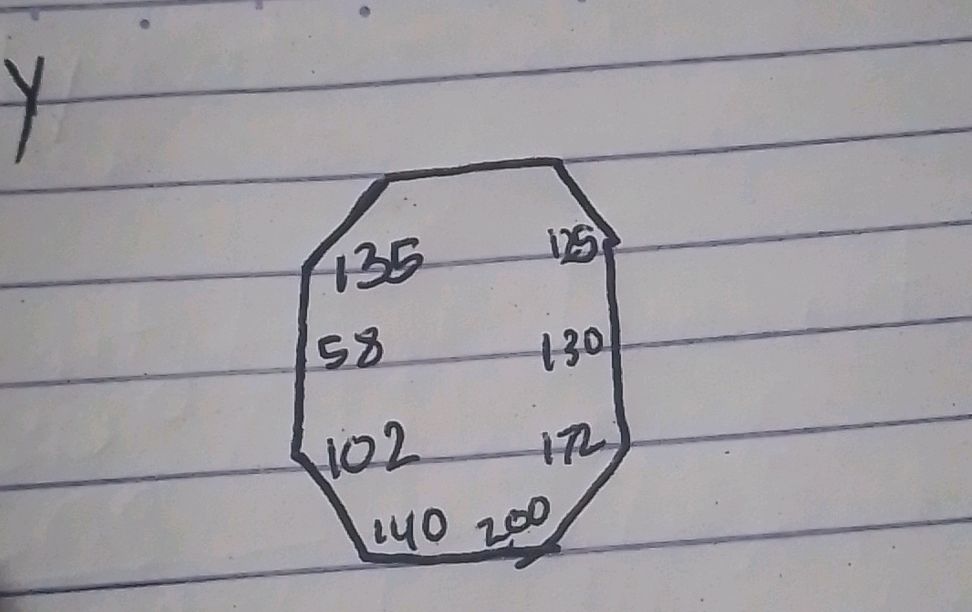 y
135 125
58 130
102 172
140 200